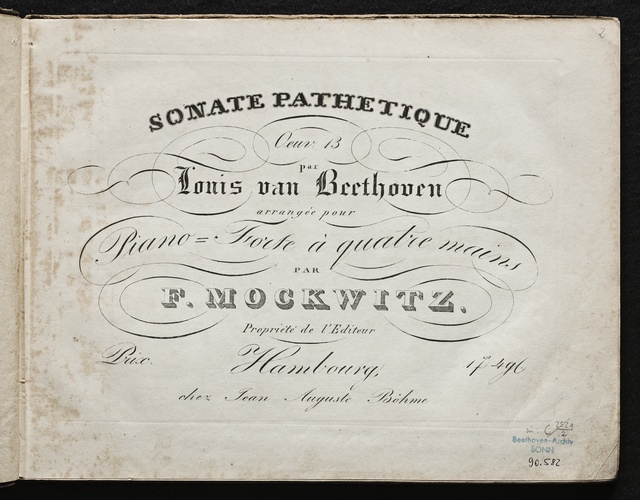 2
SONATE PATHETIQUE
Oeuv 13
par
Louis van Beethoven
arrangée pour
Piano=Forte à quatre mains
PAR
F. MOCKWITZ.
Propriété de l'Editeur
Prix. Hambourg,
chez Jean Auguste Böhme
Beethoven-Archiv
BONN
90.582